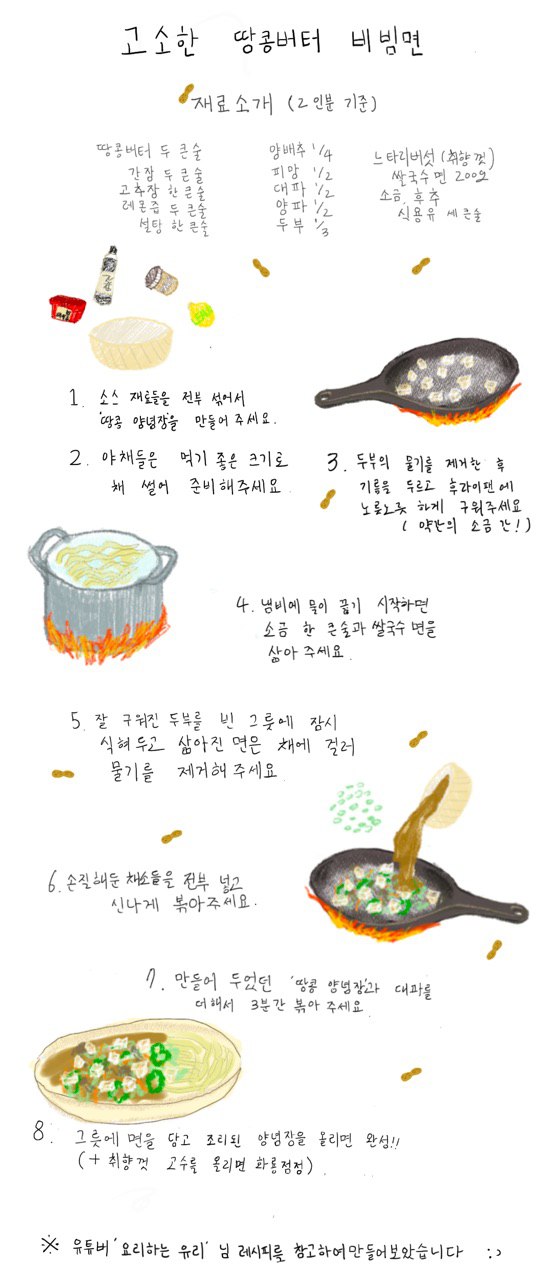 고소한 땅콩버터 비빔면
재료소개 (2인분 기준)
땅콩버터 두 큰술
간장 두 큰술
고추장 한 큰술
레몬즙 두 큰술
설탕 한 큰술
양배추 1/4
피망 1/2
대파 1/2
양파 1/2
두부 1/3
느타리버섯 (취향껏)
쌀국수면 200g
소금, 후추
식용유 세 큰술
1. 소스 재료들을 전부 섞어서
'땅콩 양념장'을 만들어 주세요.
2. 야채들은 먹기 좋은 크기로
채 썰어 준비해주세요
3. 두부의 물기를 제거한 후
기름을 두르고 후라이팬에
노릇노릇 하게 구워주세요
( 약간의 소금 간! )
4. 냄비에 물이 끓기 시작하면
소금 한 큰술과 쌀국수 면을
삶아 주세요.
5. 잘 구워진 두부를 빈 그릇에 잠시
식혀두고 삶아진 면은 채에 걸러
물기를 제거해주세요.
6. 손질해둔 채소들을 전부 넣고
신나게 볶아주세요.
7. 만들어 두었던 '땅콩 양념장'과 대파를
더해서 3분간 볶아 주세요.
8. 그릇에 면을 담고 조리된 양념장을 올리면 완성!!
(+ 취향껏 고수를 올리면 화룡점정).
※ 유튜버 '요리하는 유리' 님 레시피를 참고하여만들어보았습니다 :)